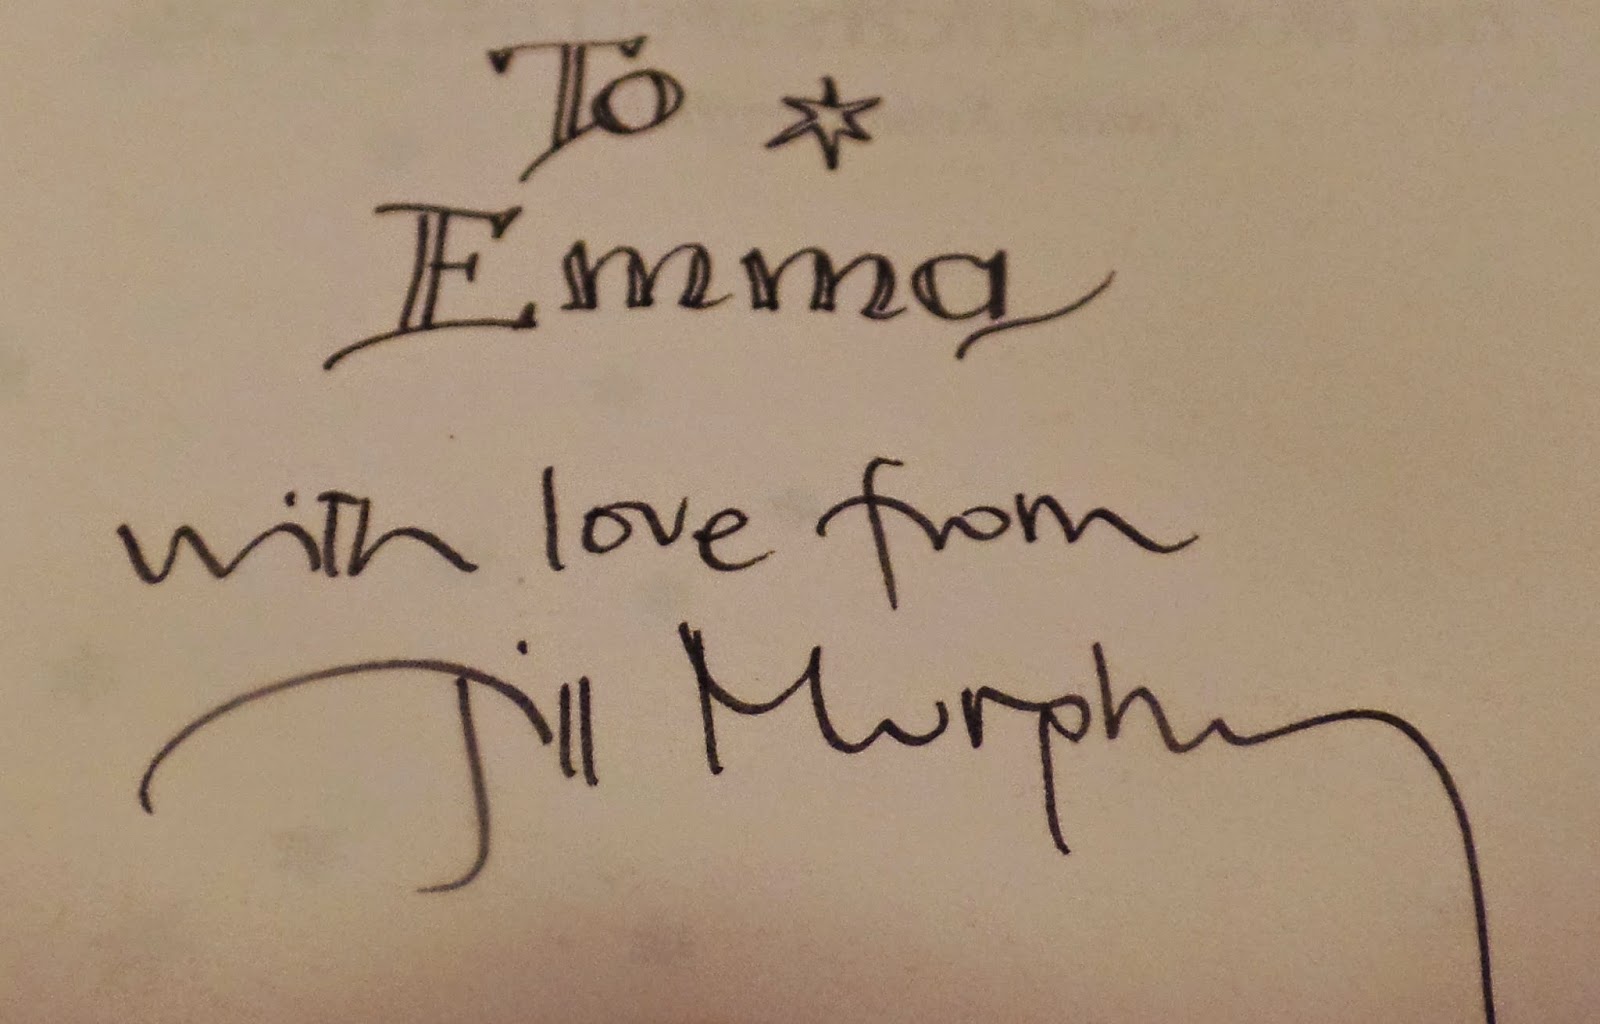 To
Emma
with love from
Jill Murphy